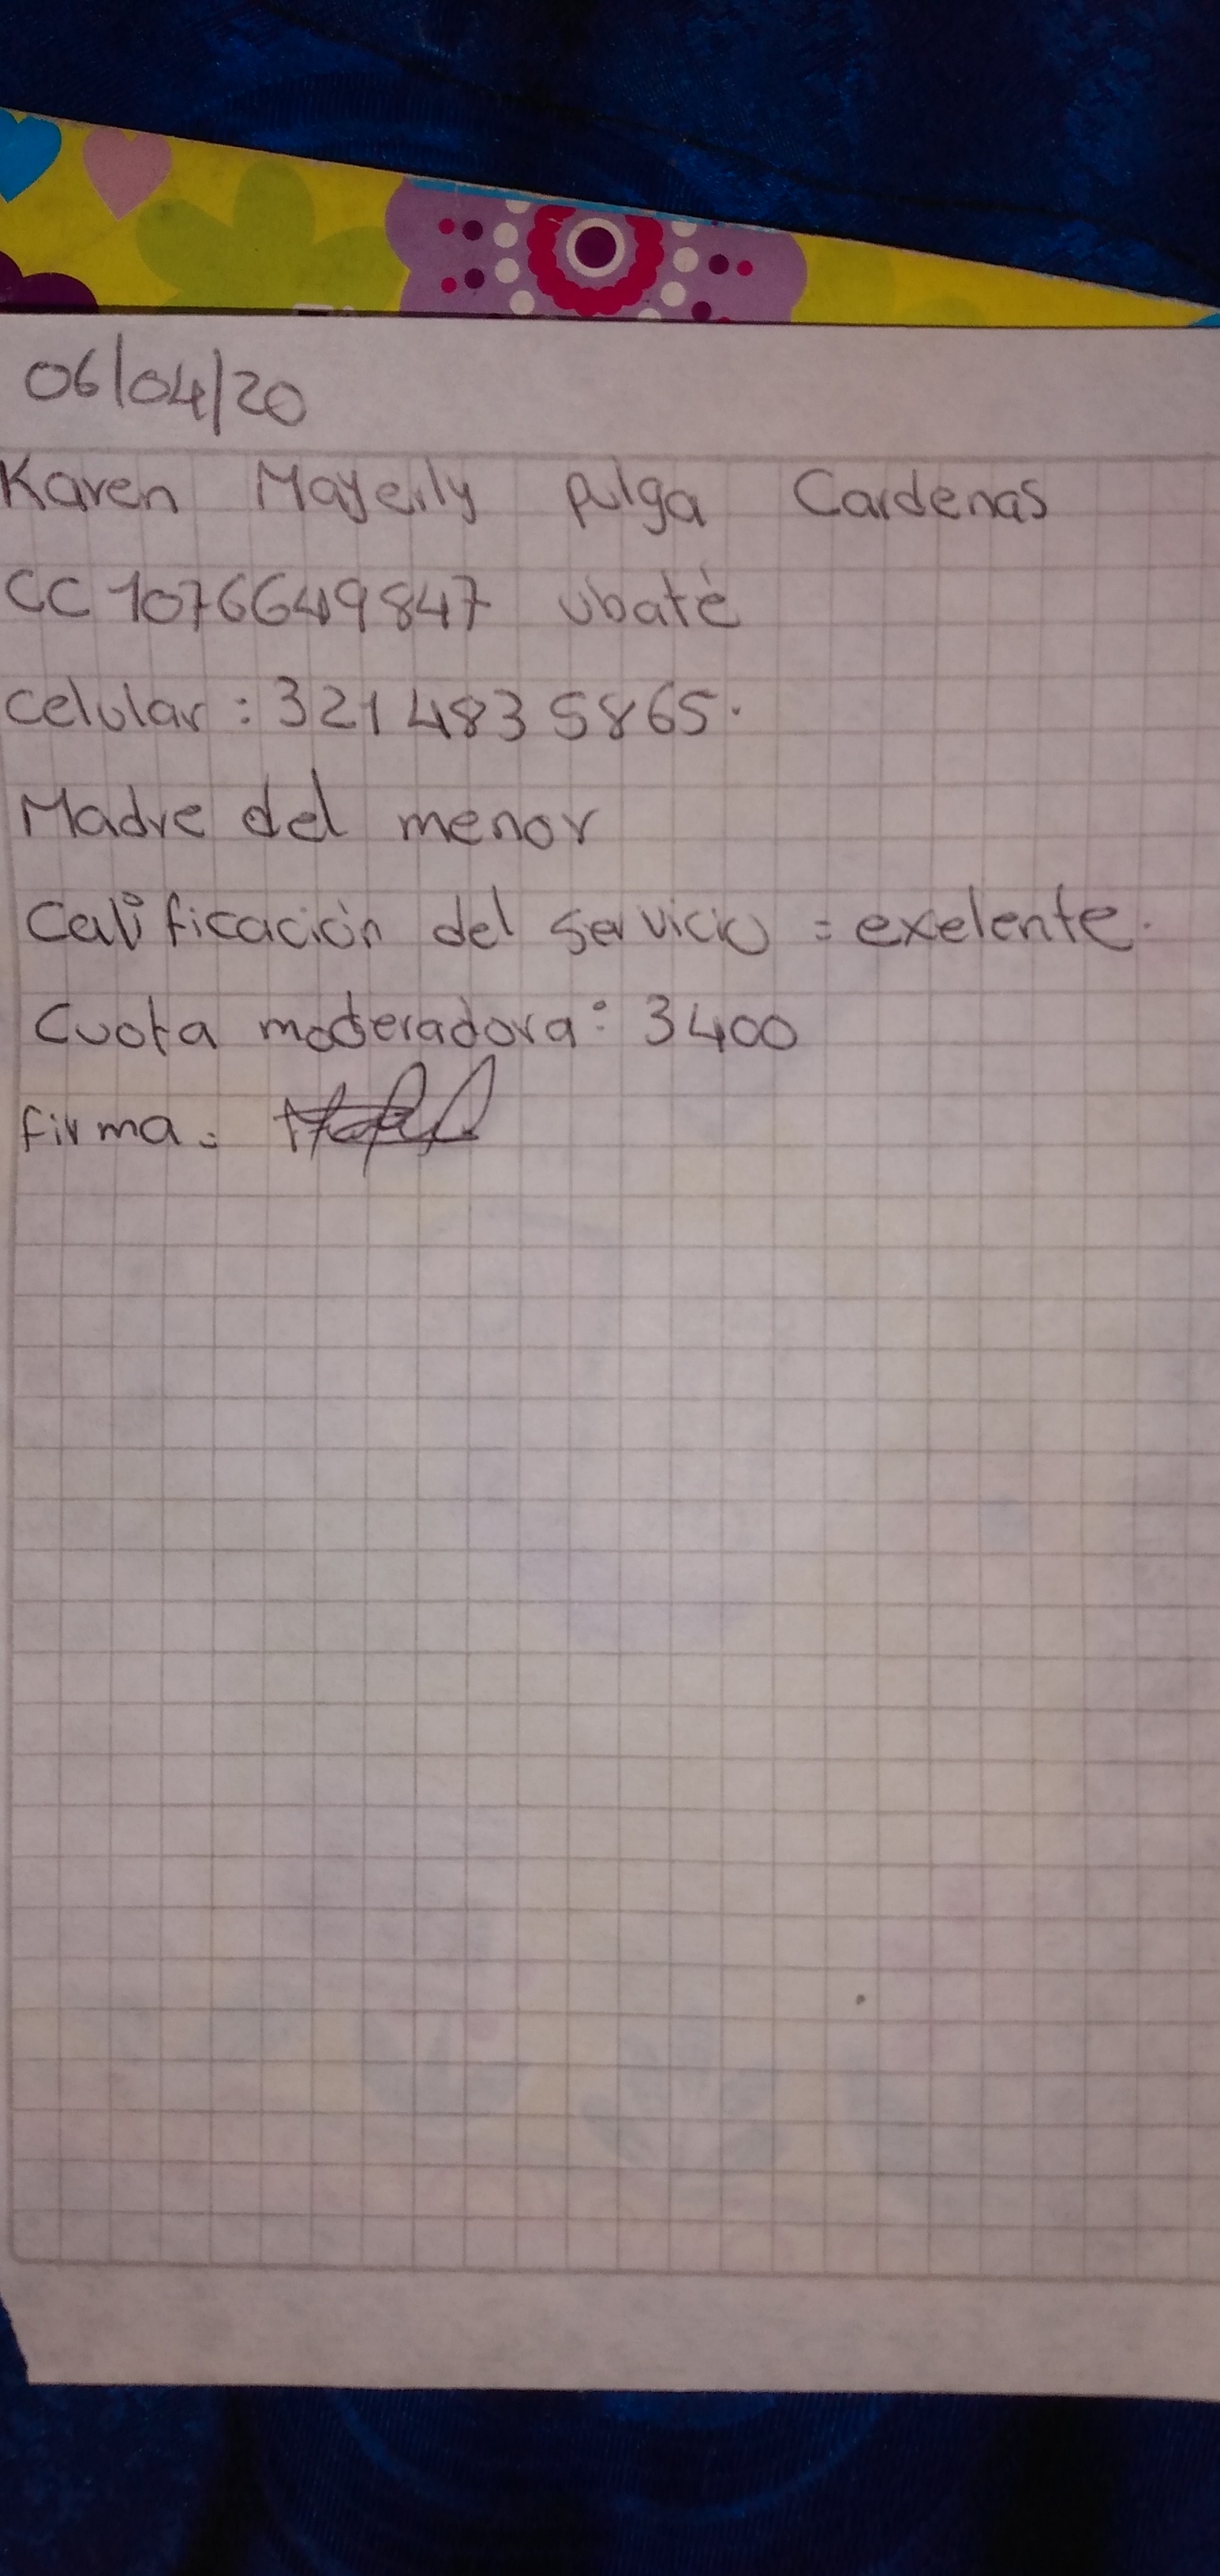 06/04/20
Karen Mayerly pulga Cardenas
CC 1076649847 Ubaté
celular: 321 483 5865.
Madre del menor
Calificación del servicio = exelente.
Cuota moderadora: 3400
firma=